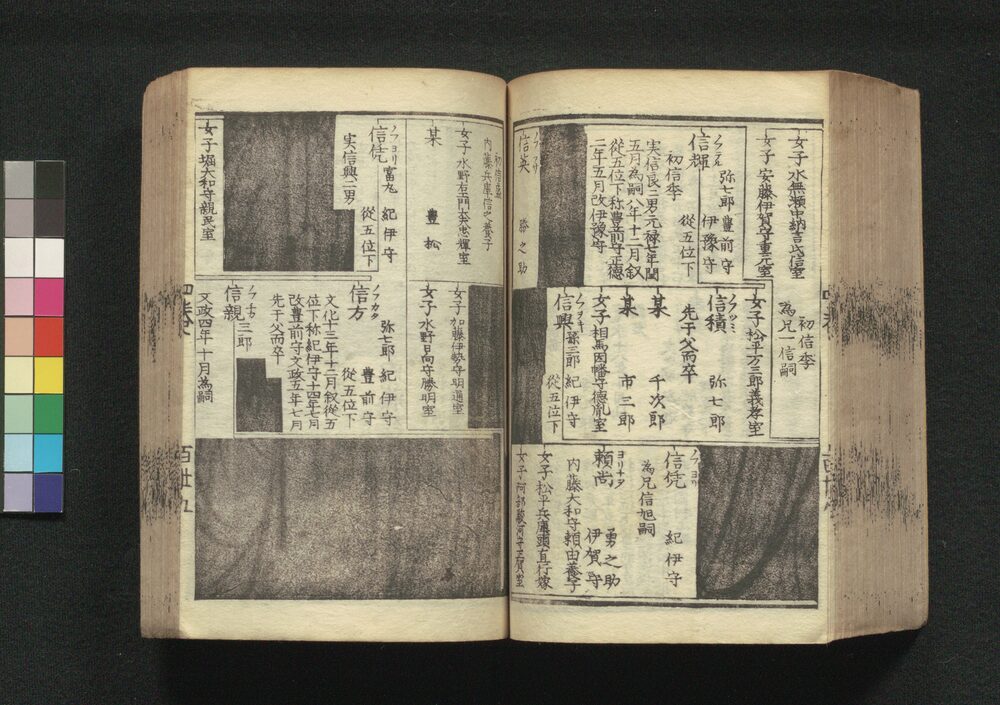 女子水無瀬中納言氏信室
女子安藤伊賀守重元室
信輝 弥七郎 豊前守
伊豫守
初信季 從五位下
実信良二男元禄七年閏
五月為嗣八年十二月叙
從五位下称豊前守正德
二年五月改伊豫守
信英 勝之助
初信季
為兄信嗣
女子松平万三郎義孝室
ノフツミ
信積 弥七郎
先于父而卒
某 千次郎
某 市三郎
女子相馬因幡守德胤室
ノフヲキ
信興 孫三郎 紀伊守
從五位下
ノフヨリ
信凭 紀伊守
為兄信旭嗣
ヨリナヲ
頼尚 勇之助
伊賀守
内藤大和守頼由養子
女子松平兵庫頭直行嫁
内藤兵庫信之養子
女子水野右衛門大夫忠輝室
某 豊松
ノフヨリ
信凭 富丸 紀伊守
從五位下
実信興二男
女子堀大和守親民室
女子加藤伊勢守明通室
女子水野日向守勝明室
ノフカタ
信方 弥七郎 紀伊守
豊前守
從五位下
文化十三年十二月叙從五
位下称紀伊守十四年七月
改豊前守文政五年七月
先于父而卒
ノフチカ
信親 三郎
文政四年十月為嗣
百廿九